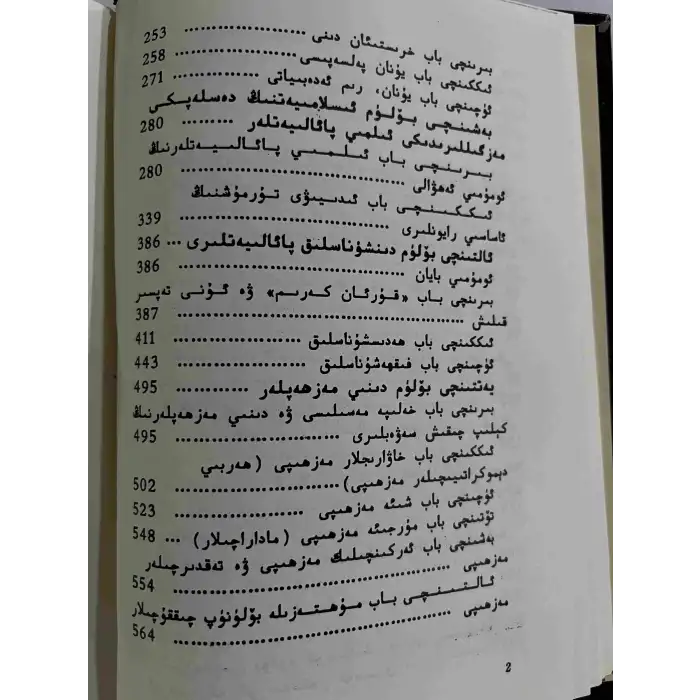 بىرىنچى باب خرىستىئان دىنى ........................ 253
ئىككىنچى باب يۇنان پەلسەپىسى ........................ 258
ئۈچىنچى باب يۇنان، رىم ئەدەبىياتى ............... 271
بەشىنچى بۆلۈم ئىسلامىيەتنىڭ دەسلەپكى
مەزگىللىرىدىكى ئىلمىي پائالىيەتلەر ......... 280
بىرىنچى باب ئىلمىي پائالىيەتلەرنىڭ
ئومۇمىي ئەھۋالى ........................ 280
ئىككىنچى باب ئىدىيىۋى تۇرمۇشنىڭ
ئاساسىي رايونلىرى ........................ 339
ئالتىنچى بۆلۈم دىنشۇناسلىق پائالىيەتلىرى ... 386
ئومۇمىي بايان ........................ 386
بىرىنچى باب «قۇرئان كەرىم» ۋە ئۇنى تەپسىر
قىلىش ........................ 387
ئىككىنچى باب ھەدىسشۇناسلىق ........................ 411
ئۈچىنچى باب فىقھەشۇناسلىق ........................ 443
يەتتىنچى بۆلۈم دىنىي مەزھەپلەر ............ 495
بىرىنچى باب خەلىپە مەسىلىسى ۋە دىنىي مەزھەپلەرنىڭ
كېلىپ چىقىش سەۋەبلىرى ........................ 495
ئىككىنچى باب خاۋارىجلار مەزھىپى (ھەربىي
دېموكراتىيىچىلەر مەزھىپى) ........................ 502
ئۈچىنچى باب شىئە مەزھىپى ........................ 523
تۆتىنچى باب مۇرجىئە مەزھىپى (ماداراچىلار) ... 548
بەشىنچى باب ئەركىنچىلىك مەزھىپى ۋە تەقدىرچىلەر
مەزھىپى ........................ 554
ئالتىنچى باب مۇھتەزىلە بۆلۈنۈپ چىققۇچىلار
مەزھىپى ........................ 564
2